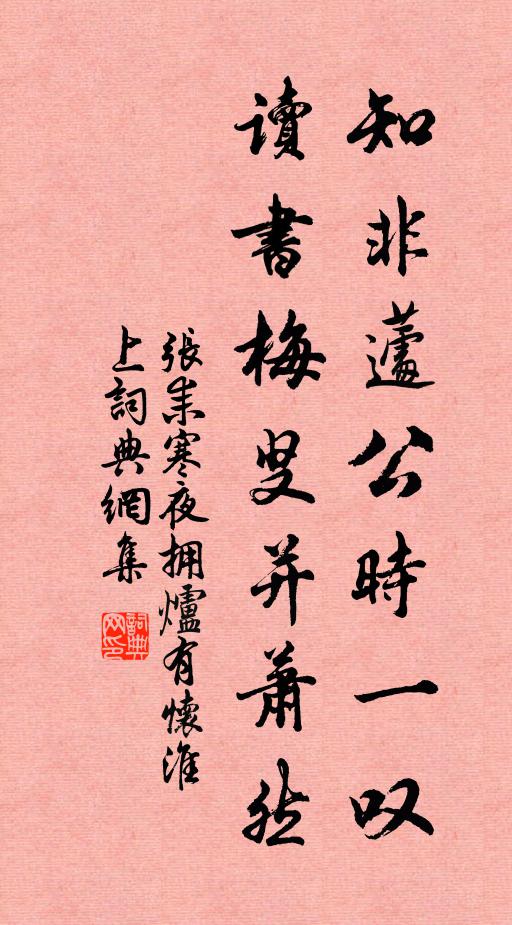 知非蘧公時一叹
讀書梅叟并蕭然
張耒寒夜拥爐有懷淮
上詞典網集
詞典网印